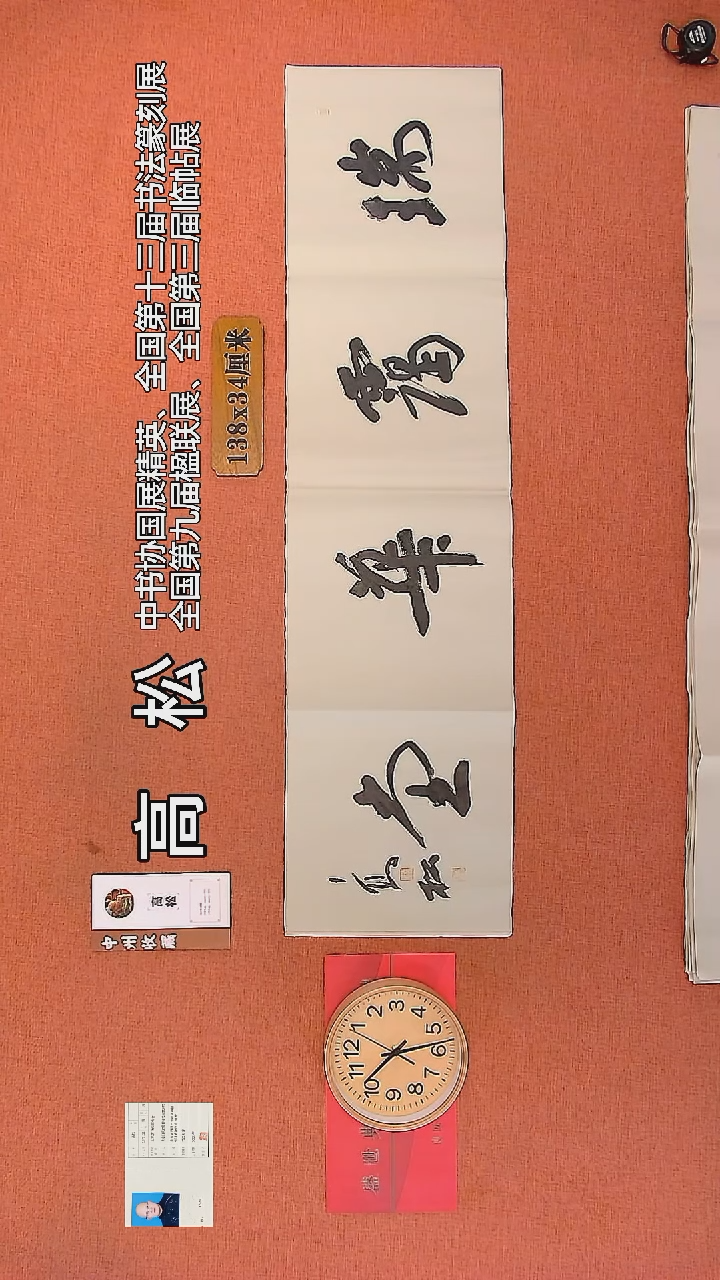 高 松
中书协国展精英、全国第十三届书法篆刻展
全国第九届楹联展、全国第三届临帖展
138x34厘米
中州收藏
高松
瑞靄華堂
高松
12
1
2
3
4
5
6
7
8
9
10
11